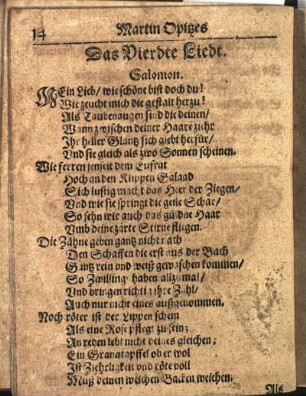 14 Martin Opitzes
Das Vierdte Liedt.
Salomon.
MEin Lieb / wie schöne bist doch du!
Wie zeucht mich die gestalt herzu!
Als Taubenaugen sind die deinen /
Wann zwischen deiner Haare ziehr
Ihr heller Glantz sich giebt herfür /
Und sie gleich als zwo Sonnen scheinen.
Wie ferren jenseit dem Eufrat
Hoch an den Klippen Galaad
Sich lustig macht das Heer der Ziegen /
Und wie sie springt die geile Schar /
So sehn wir auch das güldne Haar
Umb deine zarte Stirne fliegen.
Die Zähne geben gantz nicht nach
Den Schaffen die erst aus der Bach
Gantz rein und weiß gewaschen kommen /
So Zwillinge haben allzumal /
Und bringen richtig ihre Zahl /
Auch nur nicht eines außgenommen.
Noch röter ist der Lippen schein
Als eine Rose pflegt zu sein;
An reden lebt nicht deines gleichen;
Ein Granatapffel ob er wol
Ist Ziehrligkeit und röte voll
Muß deinen weichen Backen weichen.
Als